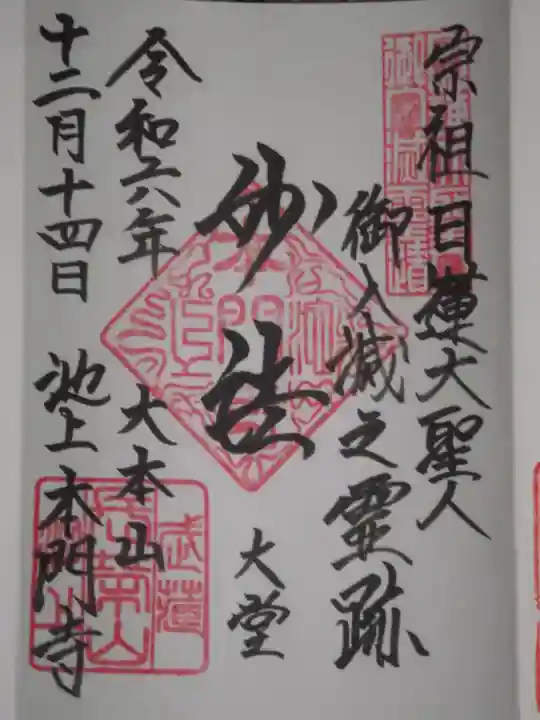 宗祖日蓮大聖人
御入滅之霊跡
妙法
大堂
令和六年
大本山
十二月十四日
池上本門寺